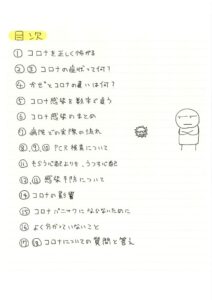 目次
① コロナを正しく怖がる
②、③ コロナの症状って何？
④ かぜとコロナの違いは何？
⑤ コロナ感染を数字で追う
⑥ コロナ感染のまとめ
⑦ 病院での実際の流れ
⑧、⑨、⑩ PCR検査について
⑪ もらう心配よりも、うつす心配
⑫、⑬ 感染予防について
⑭ コロナの影響
⑮ コロナパニックにならないために
⑯ よく分かっていないこと
⑰ ⑱ コロナについての質問と答え